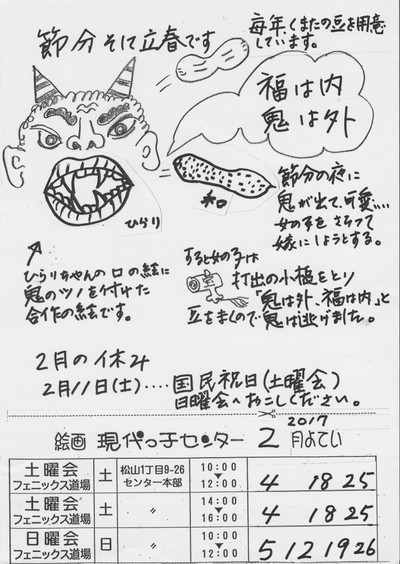 節分そして立春です
毎年くまたの豆を用意
しています。
福は内
鬼は外
ひらり
節分の夜に
鬼が出て、可愛い
女の子をさらって
嫁にしようとする。
ひらりちゃんの口の絵に
鬼のツノを付けた
合作の絵です。
すると女の子は
打出の小槌をとり
「鬼は外、福は内」と
豆をまくので鬼は逃げました。
2月の休み
2月11日(土)‥‥国民祝日(土曜会)
日曜会へおこしください。
絵画 現代っ子センター 2017 2月よてい
土曜会 フェニックス道場 土 松山1丁目9-26 センター本部 10:00 ▼ 12:00 4 18 25
土曜会 フェニックス道場 土 〃 14:00 ▼ 16:00 4 18 25
日曜会 フェニックス道場 日 〃 10:00 ▼ 12:00 5 12 19 26